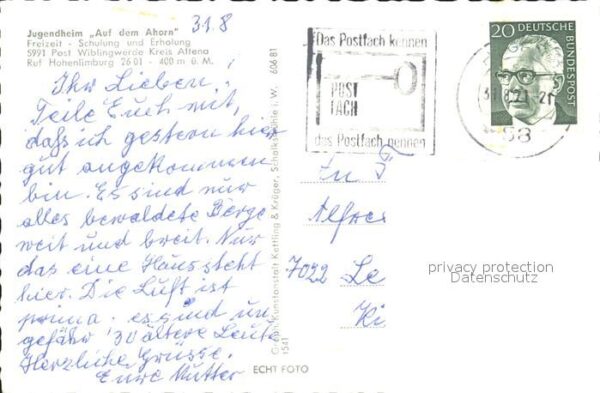 Jugendheim „Auf dem Ahorn"
Freizeit - Schulung und Erholung
5991 Post Wiblingwerde Kreis Altena
Ruf Hohenlimburg 26 01 - 400 m ü. M.
31.8
Ihr Lieben,
Teile Euch mit,
daß ich gestern hier
gut angekommen
bin. Es sind nur
alles bewaldete Berge
weit und breit. Nur
das eine Haus steht
hier. Die Luft ist
prima. es sind un
gefähr 30 ältere Leute
Herzliche Grüsse.
Eure Mutter
Kettling & Krüger, Schalksmühle i. W. 606 81
1541
ECHT FOTO
Das Postfach kennen
POST
FACH
das Postfach nennen
20 DEUTSCHE
BUNDESPOST
58
Alfre
7022 Le
privacy protection
Datenschutz